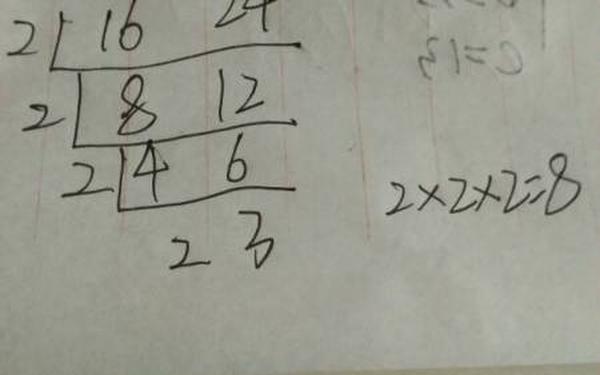 2 16 24
2 8 12
2 4 6
2 3
2×2×2=8